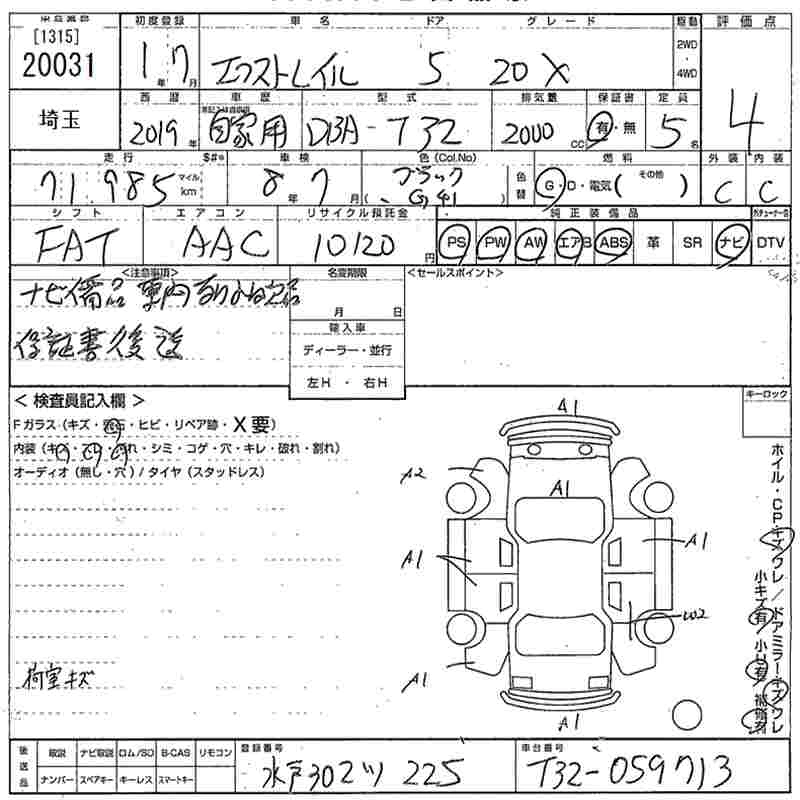 [1315]
20031
埼玉
初度登録 車名 ドア グレード 駆動 評価点
1年7月 エクストレイル 5 20X 2WD・4WD
4
西暦 車歴 型式 排気量 保証書 定員
2019年 自家用 DBA-T32 2000CC 有・無 5名
走行 $#* 車検 色(Col.No) 色替 燃料 外装 内装
71,985 マイル km 8年7月 (ブラック G41) G・D・電気( その他 ) C C
シフト エアコン リサイクル預託金 純正装備品
FAT AAC 10120円 PS PW AW エアB ABS 革 SR ナビ DTV
<注意事項> 名変期限 <セールスポイント>
ナビ備品 車内
保証書後送
月 日
輸入車
ディーラー・並行
左H ・ 右H
< 検査員記入欄 > キーロック
Fガラス(キズ・飛石・ヒビ・リペア跡・X要)
内装(キズ・コゲ・穴・キレ・破れ・割れ)
オーディオ(無し・穴)/タイヤ(スタッドレス)
A1
A2 A1
A1 A1
W2
A1
A1
荷室キズ
ホイル・CP・キズ/ワレ/ドアミラーキズ/ワレ
小キズ有 小凹有 補修有
後送品 取説 ナビ取説 ロム/SD B-CAS リモコン 登録番号 車台番号
ナンバー スペアキー キーレス スマートキー 水戸302ツ 225 T32-059713